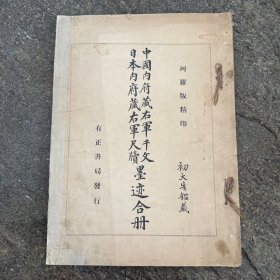 珂羅版精印
中國内府藏右軍千文
日本内府藏右軍尺牘
墨迹合册
有正書局發行
初大告鑑藏